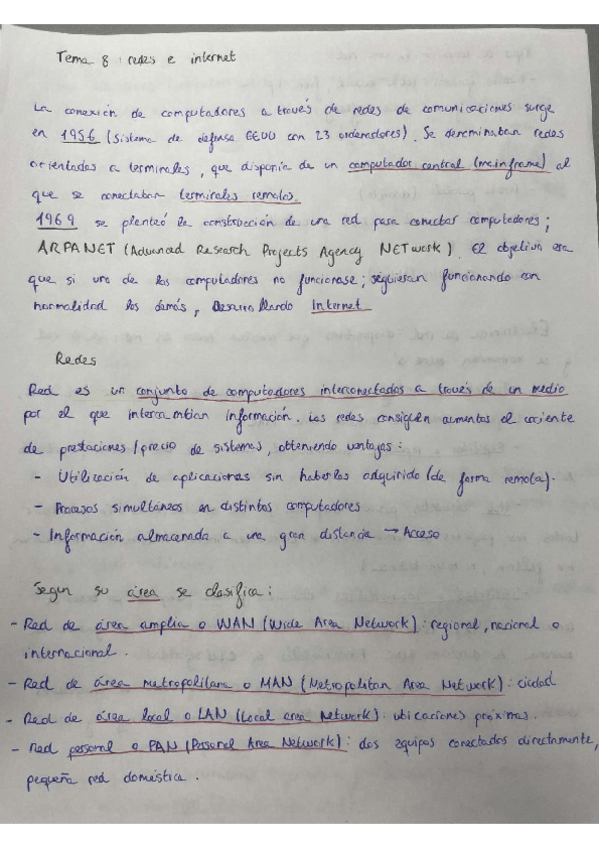 Tema 8 : redes e internet
La conexión de computadores a través de redes de comunicaciones surge
en 1956 (Sistema de defensa EEUU con 23 ordenadores). Se denominaban redes
orientadas a terminales, que disponía de un computador central (mainframe) al
que se conectaban terminales remotos.
1969 se planteó la construcción de una red para conectar computadores;
ARPANET (Advanced Research Projects Agency NETwork). El objetivo era
que si uno de los computadores no funcionase; siguiesen funcionando con
normalidad los demás, desarrollando Internet
Redes
Red es un conjunto de computadores interconectados a través de un medio
por el que intercambian información. Las redes consiguen aumentar el cociente
de prestaciones/precio de sistemas, obteniendo ventajas:
- Utilización de aplicaciones sin haberlas adquirido (de forma remota).
- Procesos simultáneos en distintos computadores
- Información almacenada a una gran distancia → Acceso
Segun su área se clasifica:
- Red de área amplia o WAN (Wide Area Network): regional, nacional o
internacional.
- Red de área metropolitana o MAN (Metropolitan Area Network): ciudad
- Red de área local o LAN (Local area Network): ubicaciones próximas.
- Red personal o PAN (Personal Area Network): dos equipos conectados directamente,
pequeña red doméstica.